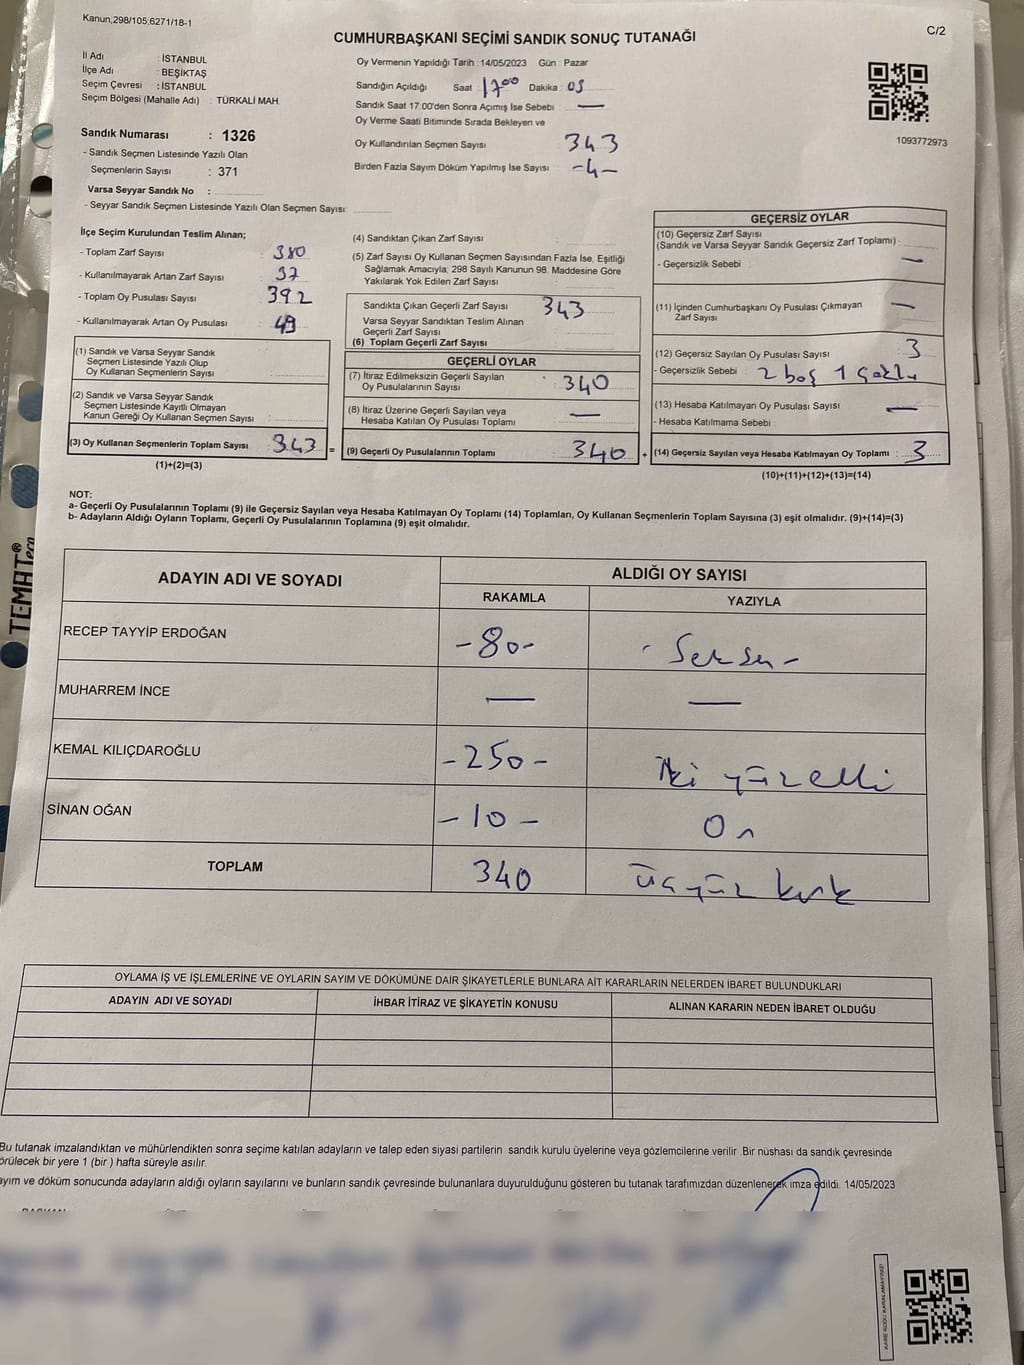 Kanun;298/105;6271/18-1
C/2
CUMHURBAŞKANI SEÇİMİ SANDIK SONUÇ TUTANAĞI
İl Adı : İSTANBUL
İlçe Adı : BEŞİKTAŞ
Seçim Çevresi : İSTANBUL
Seçim Bölgesi (Mahalle Adı) : TÜRKALİ MAH.
Oy Vermenin Yapıldığı Tarih :14/05/2023 Gün : Pazar
Sandığın Açıldığı Saat :1700 Dakika : 05
Sandık Saat 17:00'den Sonra Açımış İse Sebebi : —
Oy Verme Saati Bitiminde Sırada Bekleyen ve
Oy Kullandırılan Seçmen Sayısı 343
Birden Fazla Sayım Döküm Yapılmış İse Sayısı : -4-
1093772973
Sandık Numarası : 1326
- Sandık Seçmen Listesinde Yazılı Olan
Seçmenlerin Sayısı : 371
Varsa Seyyar Sandık No :
- Seyyar Sandık Seçmen Listesinde Yazılı Olan Seçmen Sayısı:
İlçe Seçim Kurulundan Teslim Alınan;
- Toplam Zarf Sayısı : 380
- Kullanılmayarak Artan Zarf Sayısı : 37
- Toplam Oy Pusulası Sayısı : 392
- Kullanılmayarak Artan Oy Pusulası : 49
(1) Sandık ve Varsa Seyyar Sandık
Seçmen Listesinde Yazılı Olup
Oy Kullanan Seçmenlerin Sayısı :
(2) Sandık ve Varsa Seyyar Sandık
Seçmen Listesinde Kayıtlı Olmayan
Kanun Gereği Oy Kullanan Seçmen Sayısı :
(3) Oy Kullanan Seçmenlerin Toplam Sayısı : 343 =
(1)+(2)=(3)
(4) Sandıktan Çıkan Zarf Sayısı :
(5) Zarf Sayısı Oy Kullanan Seçmen Sayısından Fazla İse, Eşitliği
Sağlamak Amacıyla; 298 Sayılı Kanunun 98. Maddesine Göre
Yakılarak Yok Edilen Zarf Sayısı :
Sandıkta Çıkan Geçerli Zarf Sayısı : 343
Varsa Seyyar Sandıktan Teslim Alınan
Geçerli Zarf Sayısı :
(6) Toplam Geçerli Zarf Sayısı :
GEÇERLİ OYLAR
(7) İtiraz Edilmeksizin Geçerli Sayılan
Oy Pusulalarının Sayısı : 340
(8) İtiraz Üzerine Geçerli Sayılan veya
Hesaba Katılan Oy Pusulası Toplamı : —
(9) Geçerli Oy Pusulalarının Toplamı : 340 +
GEÇERSİZ OYLAR
(10) Geçersiz Zarf Sayısı
(Sandık ve Varsa Seyyar Sandık Geçersiz Zarf Toplamı) :
- Geçersizlik Sebebi : —
(11) İçinden Cumhurbaşkanı Oy Pusulası Çıkmayan
Zarf Sayısı : —
(12) Geçersiz Sayılan Oy Pusulası Sayısı : 3
- Geçersizlik Sebebi : 2 boş 1 çoklu
(13) Hesaba Katılmayan Oy Pusulası Sayısı : —
- Hesaba Katılmama Sebebi :
(14) Geçersiz Sayılan veya Hesaba Katılmayan Oy Toplamı : 3
(10)+(11)+(12)+(13)=(14)
NOT:
a- Geçerli Oy Pusulalarının Toplamı (9) ile Geçersiz Sayılan veya Hesaba Katılmayan Oy Toplamı (14) Toplamları, Oy Kullanan Seçmenlerin Toplam Sayısına (3) eşit olmalıdır. (9)+(14)=(3)
b- Adayların Aldığı Oyların Toplamı, Geçerli Oy Pusulalarının Toplamına (9) eşit olmalıdır.
TEMAT® eco
ADAYIN ADI VE SOYADI
ALDIĞI OY SAYISI
RAKAMLA YAZIYLA
RECEP TAYYİP ERDOĞAN -80- - Seksen -
MUHARREM İNCE — —
KEMAL KILIÇDAROĞLU -250- İki yüzelli
SİNAN OĞAN -10- On
TOPLAM 340 üçyüz kırk
OYLAMA İŞ VE İŞLEMLERİNE VE OYLARIN SAYIM VE DÖKÜMÜNE DAİR ŞİKAYETLERLE BUNLARA AİT KARARLARIN NELERDEN İBARET BULUNDUKLARI
ADAYIN ADI VE SOYADI İHBAR İTİRAZ VE ŞİKAYETİN KONUSU ALINAN KARARIN NEDEN İBARET OLDUĞU
Bu tutanak imzalandıktan ve mühürlendikten sonra seçime katılan adayların ve talep eden siyasi partilerin sandık kurulu üyelerine veya gözlemcilerine verilir .Bir nüshası da sandık çevresinde
örülecek bir yere 1 (bir ) hafta süreyle asılır.
ayım ve döküm sonucunda adayların aldığı oyların sayılarını ve bunların sandık çevresinde bulunanlara duyurulduğunu gösteren bu tutanak tarafımızdan düzenlenerek imza edildi. 14/05/2023
KARE KODU KARALAMAYINIZ!